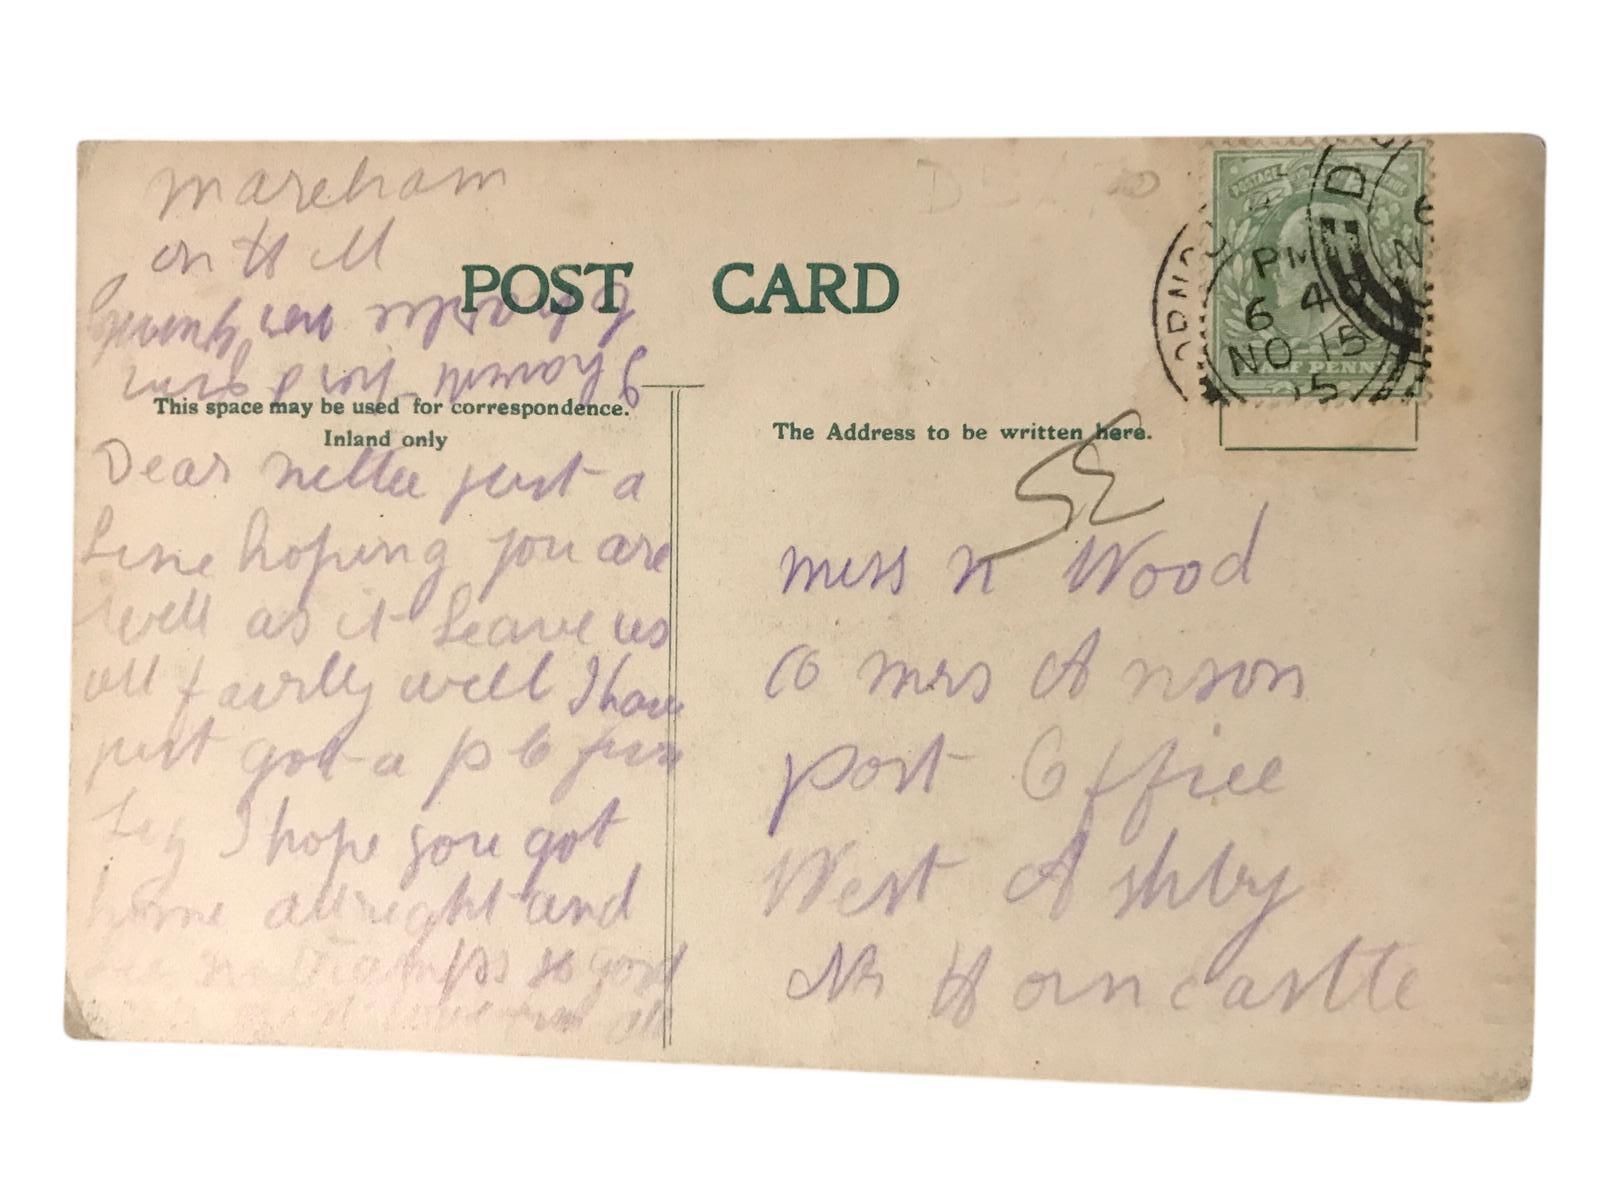 Mareham
on H ll
POST CARD
This space may be used for correspondence.
Inland only
The Address to be written here.
POSTAGE
HALF PENNY
PM
6 4
NO 15
Dear Nellie just a
Line hoping you are
well as it Leave us
all fairlly well I have
just got a p C from
I hope you got
home allright and
no Tramps
all
I havent had
Miss N Wood
CO Mrs Anson
Post Office
West Ashby
Nr Horncastle